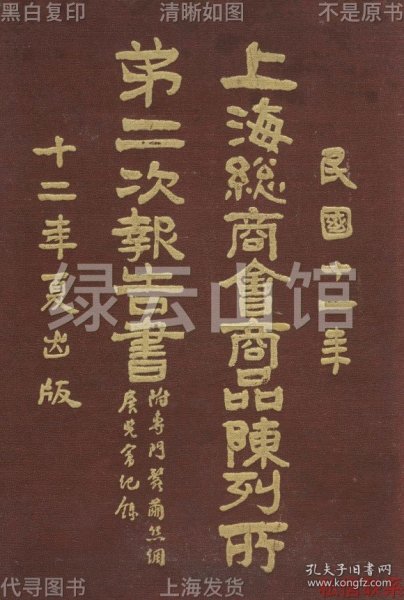 黑白复印
清晰如图
不是原书
民國十一年
上海總商會商品陳列所
第二次報告書
附專門蠶繭絲綢
展覽會紀錄
十二年夏出版
绿云山馆
代寻图书
上海发货
孔夫子旧书网
www.kongfz.com